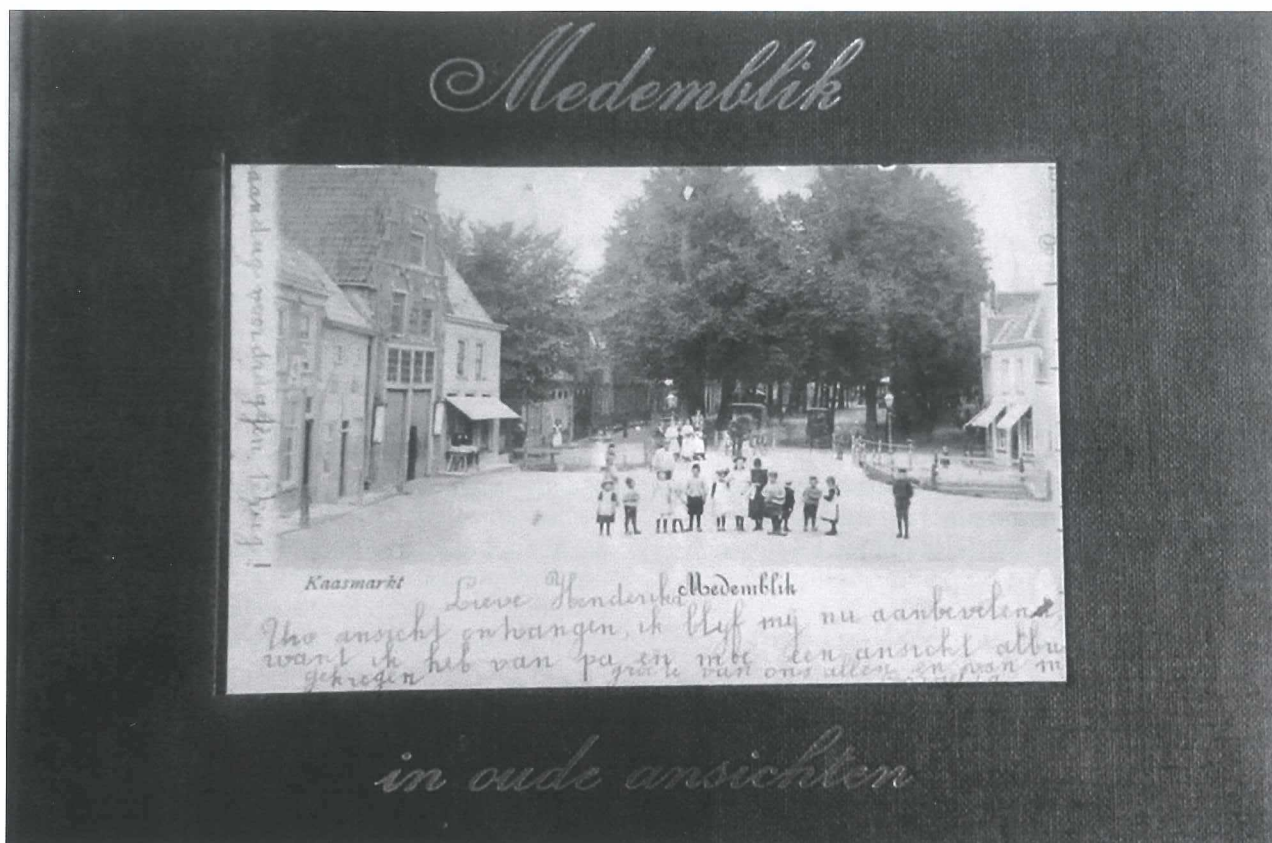 Medemblik
Kaasmarkt
Medemblik
Lieve Henderika
Uw ansicht ontvangen, ik blyf my nu aanbevelen,
want ik heb van pa en moe een ansicht albu
gekregen
groete van ons allen en van m
in oude ansichten